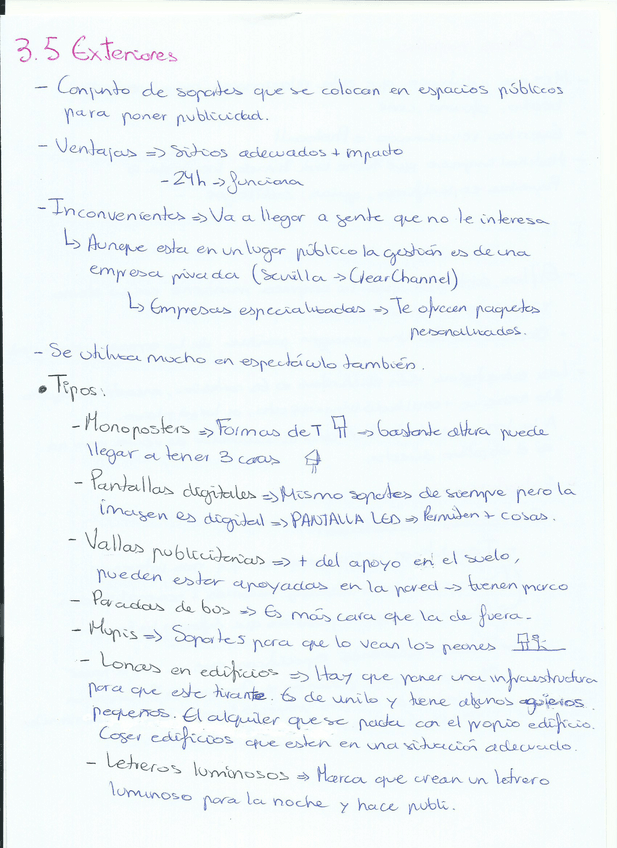 3.5 Exteriores
- Conjunto de soportes que se colocan en espacios públicos
para poner publicidad.
- Ventajas => Sitios adecuados + impacto
- 24h -> funciona
- Inconvenientes => Va a llegar a gente que no le interesa
↳ Aunque esta en un lugar público la gestión es de una
empresa privada (Sevilla -> ClearChannel)
↳ Empresas especializadas => Te ofrecen paquetes
personalizados.
- Se utiliza mucho en espectáculo también.
• Tipos:
- Monoposters => Formas de T -> bastante altura puede
llegar a tener 3 caras
- Pantallas digitales => Mismo soportes de siempre pero la
imagen es digital => PANTALLA LED => Permiten + cosas.
- Vallas publicitarias => + del apoyo en el suelo,
pueden estar apoyadas en la pared -> tienen marco
- Paradas de bus => Es más cara que la de fuera.
- Mupis => Soportes para que lo vean los peones
- Lonas en edificios => Hay que poner una infraestructura
para que este tirante. Es de vinilo y tiene algunos agujeros
pequeños. El alquiler que se pacta con el propio edificio.
Coger edificios que esten en una situación adecuado.
- Letreros luminosos => Marca que crean un letrero
luminoso para la noche y hace publi.